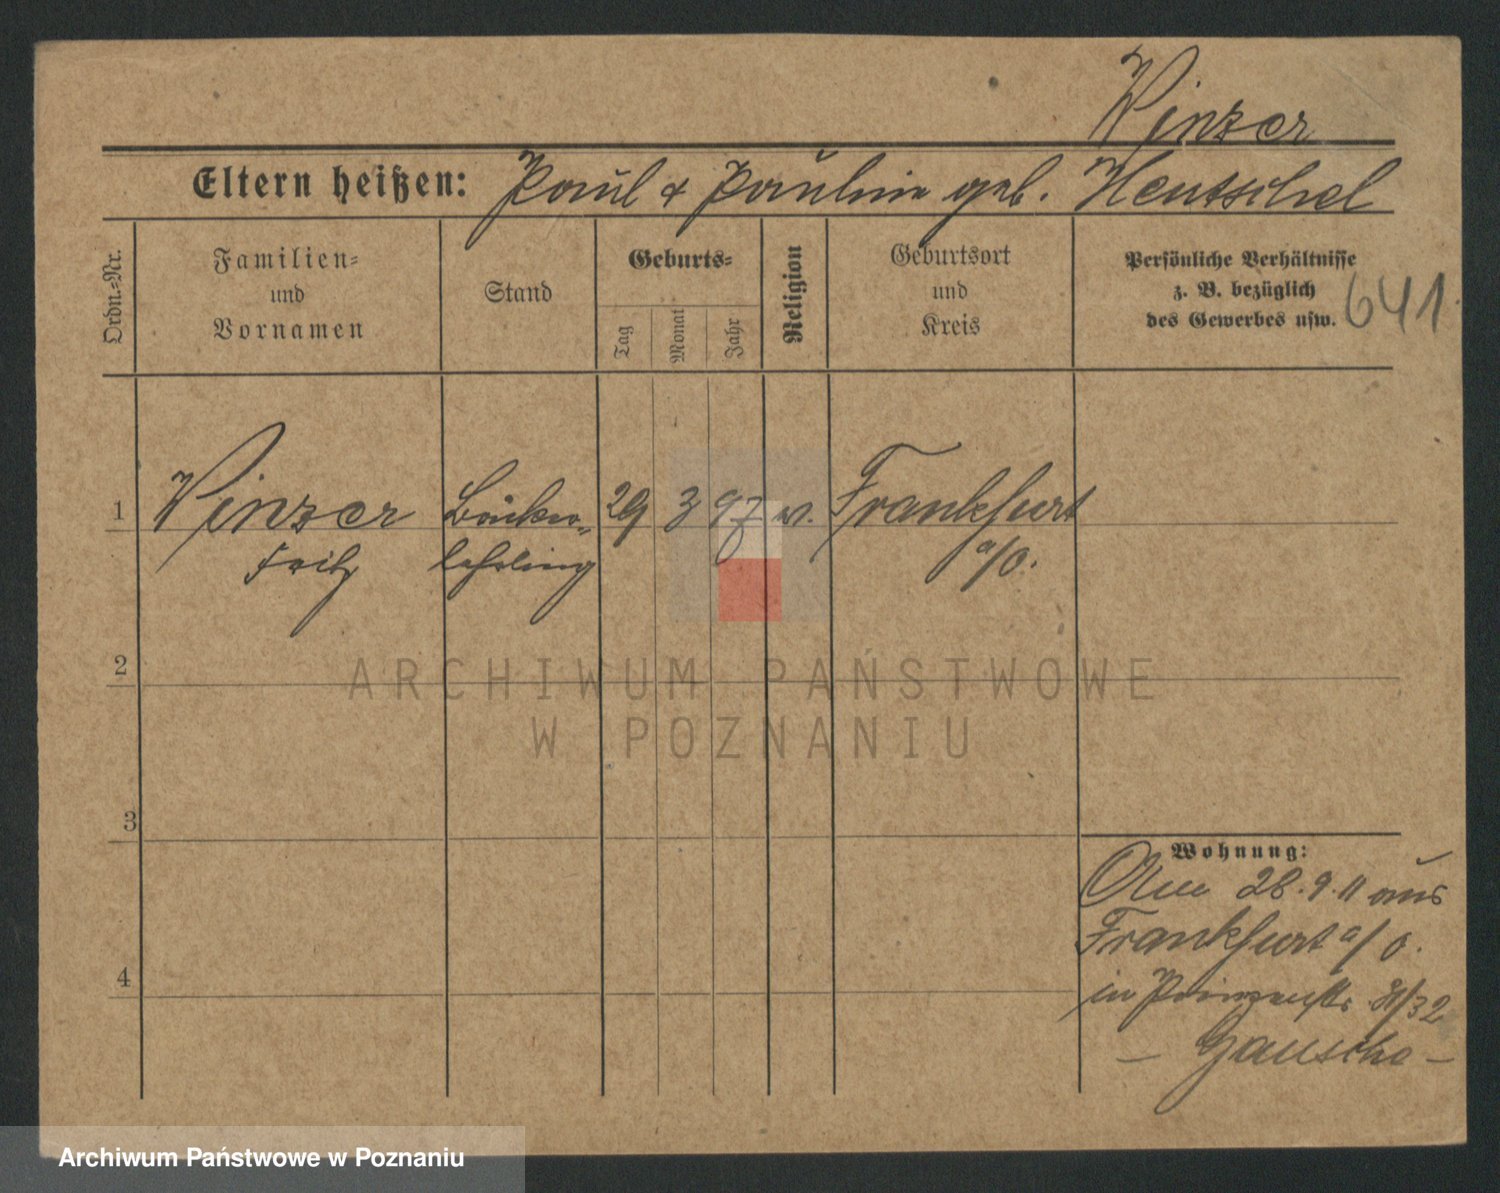 Winzer
Eltern heißen: Paul & Pauline geb. Hentschel
Ordn.-Nr.
Familien-
und
Vornamen
Stand
Geburts-
Tag
Monat
Jahr
Religion
Geburtsort
und
Kreis
Persönliche Verhältnisse
z. B. bezüglich
des Gewerbes usw.
641
1 Winzer Bäcker- 29 3 97 ev. Frankfurt
Fritz lehrling a/O.
2
ARCHIWUM PAŃSTWOWE
W POZNANIU
3
Wohnung:
Am 28.9.11 aus
Frankfurt a/O.
in Prinzenstr.
4
Archiwum Państwowe w Poznaniu